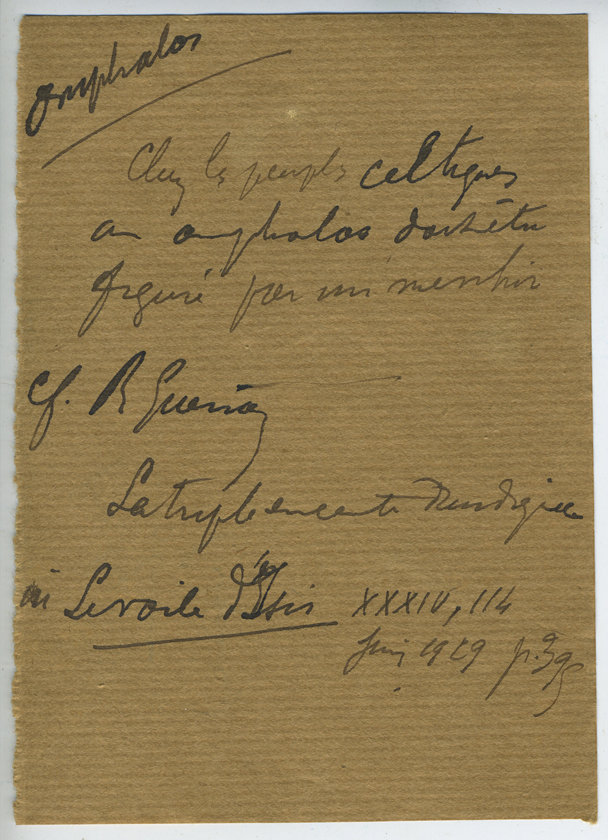 omphalos
Chez les peuples celtiques
un omphalos d'ort être
figuré par un menhir
cf. R Guenon
La triple enceinte druidique
in Le voile d'Isis XXXIV, 114
Juin 1929 p. 395